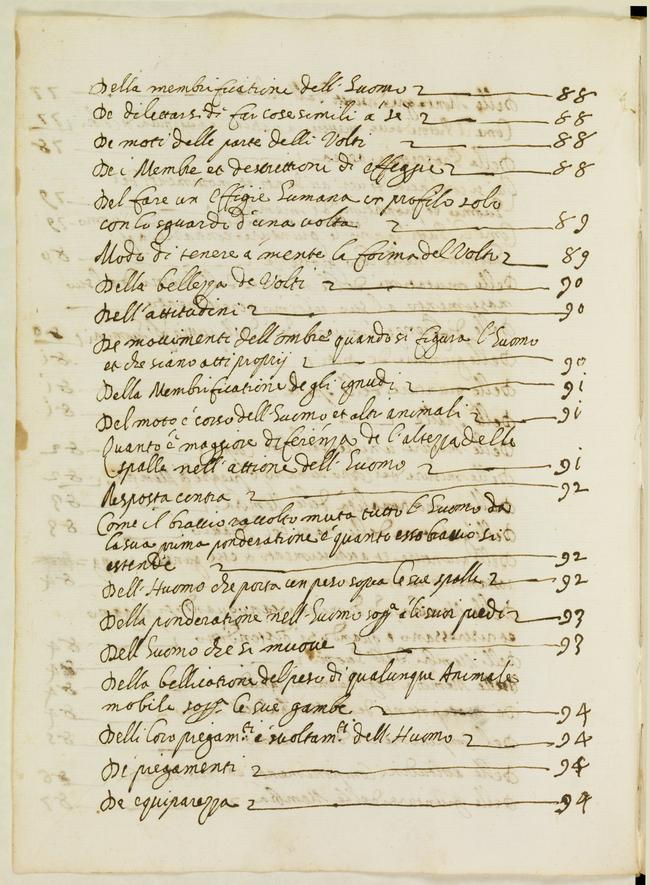 Della membrificatione dell'Huomo 88
De dilettarsi di far cose simili a se 88
De moti delle parte delli Volti 88
De i Membr et descrittioni di effiggie 88
Del fare un' Effigie humana in profilo solo
con lo sguardo d'una volta 89
Modo di tenere a mente la forma del Volti 89
Della bellezza de Volti 90
Dell'attitudini 90
De movimenti dell'ombre quando si figura l'Huomo
et che siano atti proprij 90
Della Membrificatione de gli ignudi 91
Del moto è corso dell'Huomo et altri animali 91
Quanto è maggiore diferenza de l'altezza delle
spalle nell'attione dell'Huomo 91
Resposta contra 92
Come il braccio raccolto muta tutto l'Huomo da
la sua prima ponderatione e quanto esso braccio si
estende 92
Dell'Huomo che porta un peso sopra le sue spalle 92
Della ponderatione nell'Huomo sopª a li suoi piedi 93
Dell'Huomo che si muove 93
Della bellicatione del peso di qualunque Animale
mobile sopª le sue gambe 94
Delli loro piegamti é svoltamti dell'Huomo 94
De piegamenti 94
De equiparezza 94